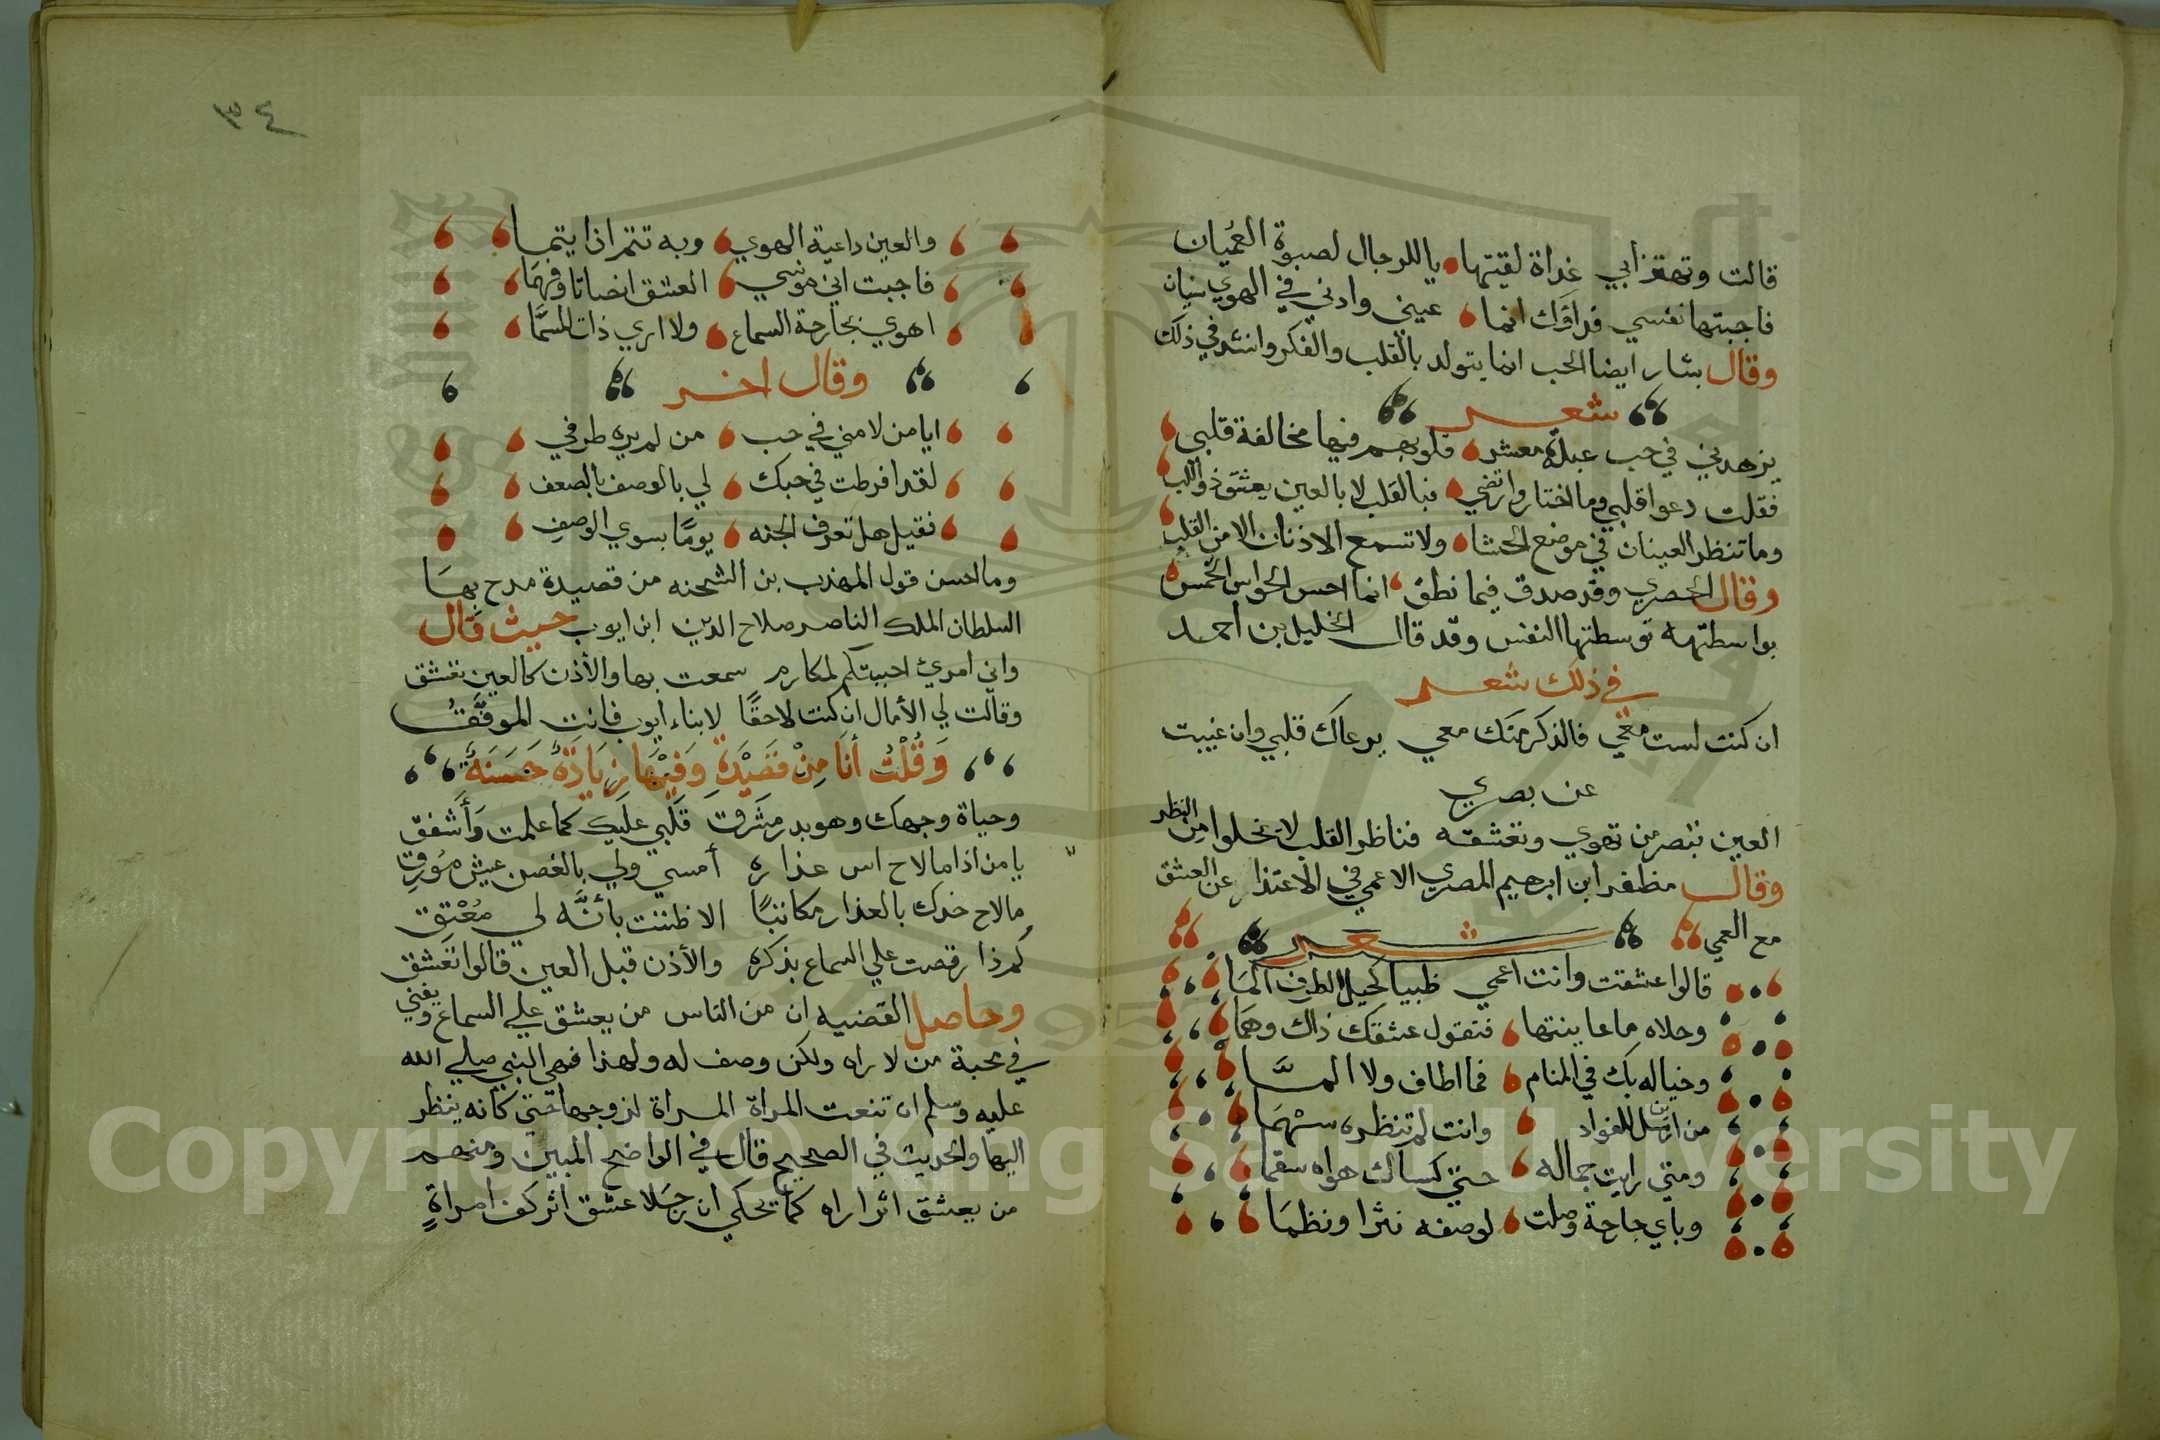 قالت وتهتزأبي غداة لقيتها يا للرجال لصبوة العميان
فاجبتها نفسي فداؤك انما عيني واذني في الهوي سيان
وقال بشار ايضا الحب انما يتولد بالقلب والفكر وانشد في ذلك
شعر
يزهدني في حب عبلة معشر قلوبهم فيها مخالفة قلبي
فقلت دعوا قلبي وما اختار وارتضي فبالقلب لا بالعين يعشق ذو اللب
وما تنظر العينان في موضع الحشا ولا تسمع الاذنان الا من القلب
وقال الحصري وقد صدق فيما نطق انما احس الحواس الخمس
بواسطتهه توسطتها النفس وقد قال الخليل بن أحمد
في ذلك شعر
ان كنت لست معي فالذكر منك معي يرعاك قلبي وان غيبت
عن بصري
العين تبصر من تهوي وتعشقه فناظر القلب لا يخلوا من النظر
وقال مظفر ابن ابرهيم المصري الاعمي في الاعتذار عن العشق
مع العمي
شعر
قالوا عشقت وانت اعمي ظبيا كحيل الطرف المَا
وحلاه ما عاينتها فتقول عشقك ذاك وهَما
وخياله بك في المنام فما اطاف ولا المَّا
من اين ارسل للفواد وانت لم تنظره سهْمَا
ومتي رايت جماله حتي كساك هواه سقما
وباي جارحة وصلت لوصفه نثرا ونظمَا
٣٤
والعين داعية الهوي وبه تتم اذا يتما
فاجبت اني موسي العشق انصاتا وفهمَا
اهوي بجارحة السماع ولا اري ذات المسمَّا
وقال اخر
ايا من لامني في حب من لم يره طرفي
لقد افرطت في حبك لي بالوصف بالضعف
فقيل هل تعرف الجنه يومًا بسوي الوصفِ
وما احسن قول المهذب بن الشحنه من قصيدة مدح بهَا
السلطان الملك الناصر صلاح الدين ابن ايوب حيث قال
واني امرئ احببتكم لمكارم سمعت بها والأذن كالعين تعشق
وقالت لي الأمال ان كنت لاحقًا لابناء أيوب فانت الموفَّقُ
وَقُلْتُ أنَا مِنْ قَصِيْدَةٍ وَفِيْهَا زِيَادَةٌ حَسَنَةٌ
وحياة وجهك وهو بدر مشرقت قَلبي عليك كما علمت وَأَشفق
يا من اذا ما لاح اس عذاره أمسي ولي بالغصن عيش مُورقِ
ما لاح خدك بالعذار مكاتبًا الا ظننت بأنَّه لي مُعْتِق
كم ذا رقصت علي السماع بذكره والأذن قبل العين قالوا تَعشق
وحاصل القضيه ان من الناس من يعشق علي السماع ويفني
في محبة من لا راه ولكن وصف له ولهذا نهي النبي صلي الله
عليه وسلم ان تنعت المراة المراة لزوجها حتي كانه ينظر
اليها والحديث في الصحيح قال في الواضح المبين ومنهم
من يعشق اثرا راه كما يحكي ان رجلا عشق اثر كف امراةٍ